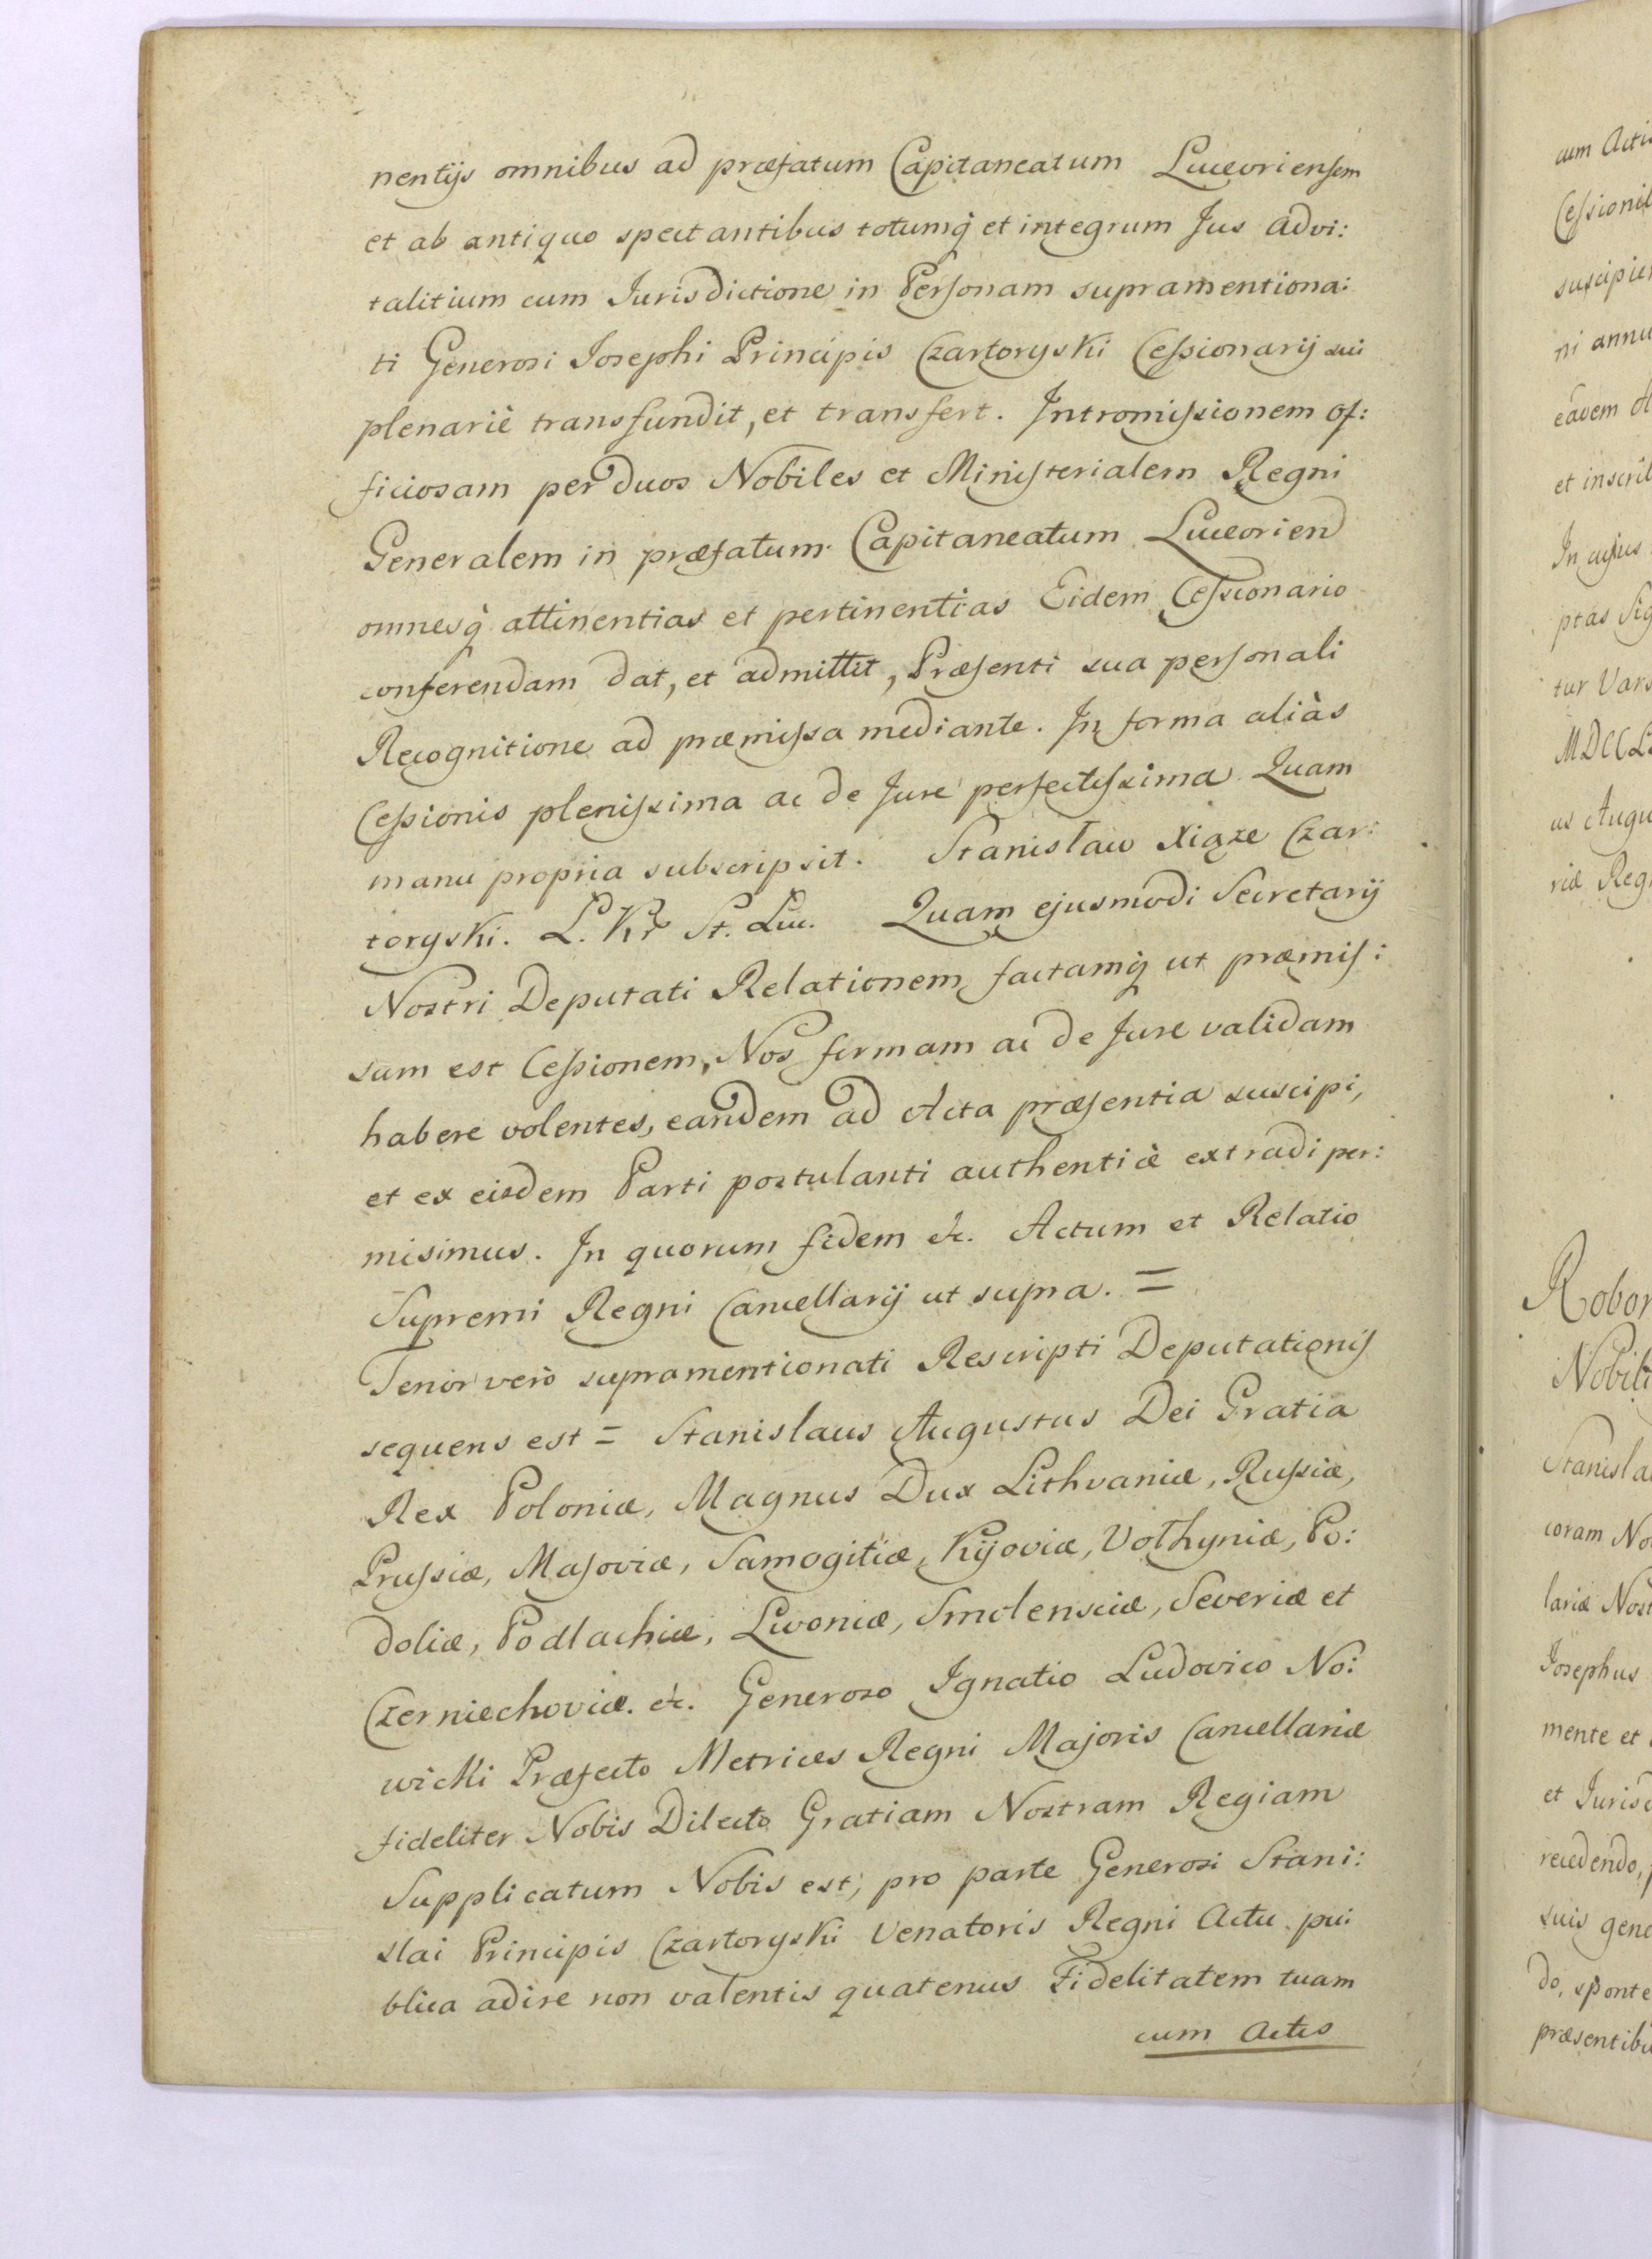 nentijs omnibus ad præfatum Capitaneatum Luceoriensem
et ab antiquo spectantibus totumq̀ et integrum Jus advi:
talitium cum Jurisdictione in Personam supramentiona:
ti Generosi Josephi Principis Czartoryski Cessionarij sui
plenariè transfundit, et transfert. Intromissionem of:
ficiosam per duos Nobiles et Ministerialem Regni
Generalem in præfatum Capitaneatum Luceorien
omnesq̀ attinentias et pertinentias Eidem Cessionario
conferendam dat, et admittit, Præsenti sua personali
Recognitione ad præmissa mediante. In forma aliàs
Cessionis plenissima ac de Jure perfectissima. Quam
manu propria subscripsit. Stanisław Xiąze Czar:
toryski. L. Kr St. Luc. Quam ejusmodi Secretarij
Nostri Deputati Relationem factamq̀ ut præmis:
sum est Cessionem, Nos firmam ac de Jure validam
habere volentes, eandem ad Acta præsentia suscipi,
et ex eisdem Parti postulanti authenticè extradi per:
misimus. In quorum fidem &c. Actum et Relatio
Supremi Regni Cancellarij ut supra. =
Tenor verò supramentionati Rescripti Deputationis
sequens est = Stanislaus Augustus Dei Gratia
Rex Poloniæ, Magnus Dux Lithvaniæ, Russiæ,
Prussiæ, Masoviæ, Samogitiæ, Kijoviæ, Volhyniæ, Po:
doliæ, Podlachiæ, Livoniæ, Smolensciæ, Severiæ et
Czerniechoviæ. &c. Generoso Ignatio Ludovico No:
wicki Præfecto Metrices Regni Majoris Cancellariæ
fideliter Nobis Dilecto Gratiam Nostram Regiam
Supplicatum Nobis est, pro parte Generosi Stani:
slai Principis Czartoryski Venatoris Regni Actu pu:
blica adire non valentis quatenus Fidelitatem tuam
cum Actis
cum Acti
Cessionib
suscipien
ni annu
eadem
et inscrib
In cujus
ptas Sig
tur Vars
MDCCL
us Augu
riæ Reg
Robor
Nobili
Stanisla
coram No
lariæ Nost
Josephus
mente et
et Jurisd
recedendo,
suis gene
do, sponte
præsentibu